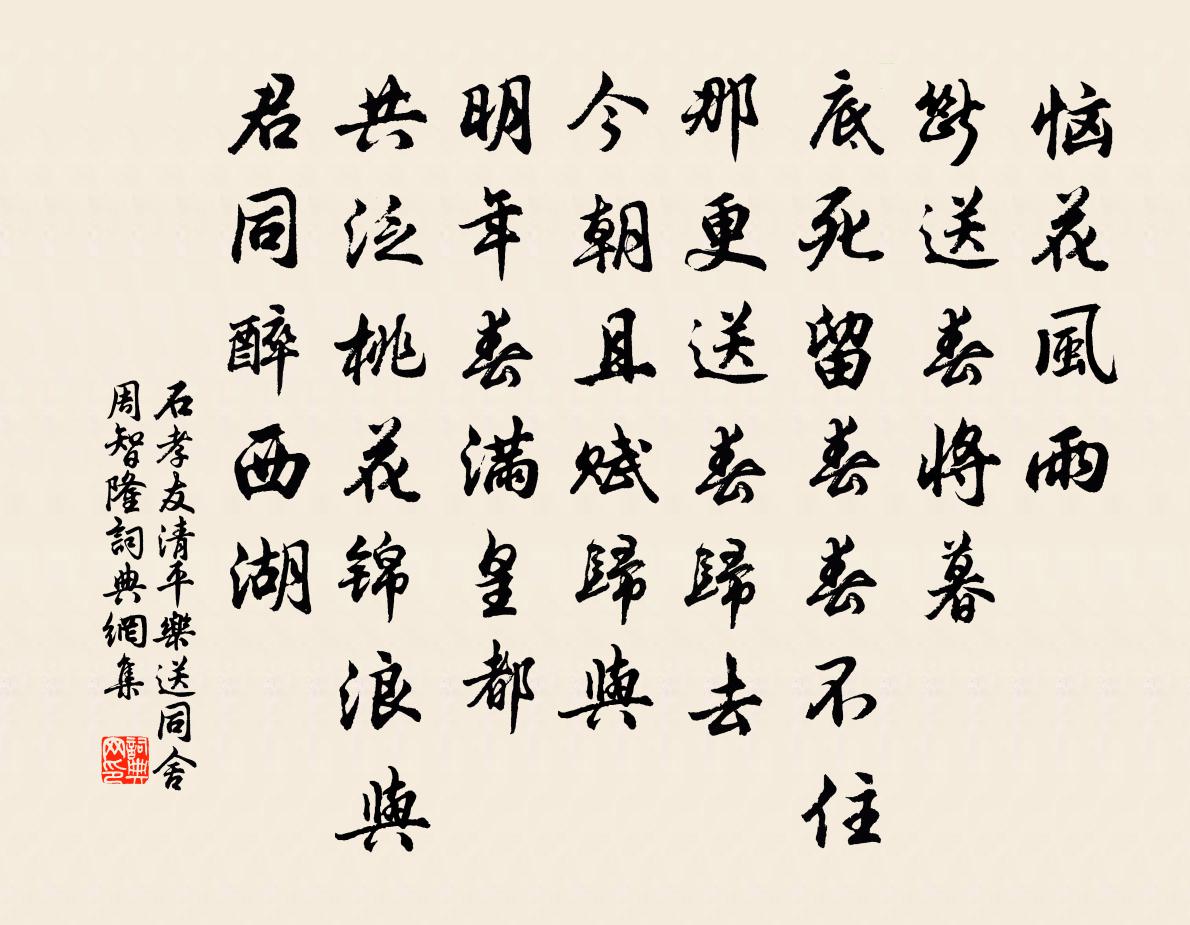 恼花風雨
断送春將暮
底死留春春不住
那更送春歸去
今朝且賦歸與
明年春滿皇都
共泛桃花锦浪與
君同醉西湖
石孝友清平樂送同舍
周智隆詞典網集
詞典
网印